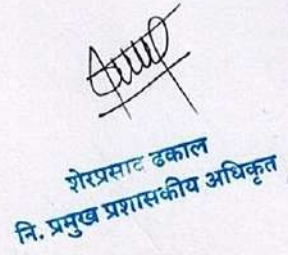 शेरप्रसाद ढकाल
नि. प्रमुख प्रशासकीय अधिकृत